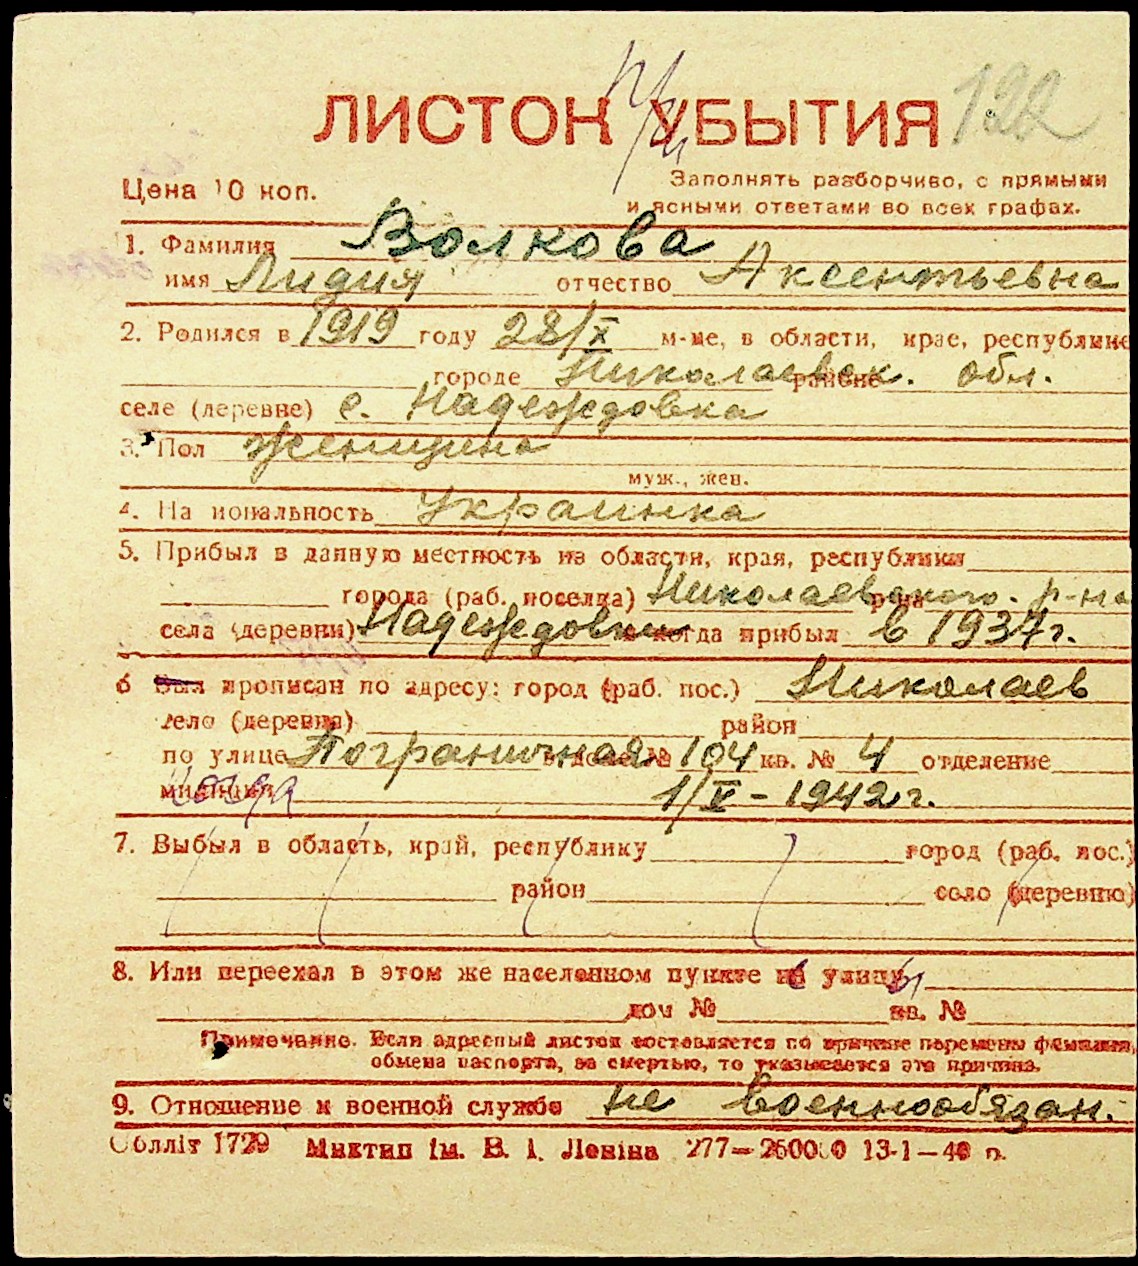 ЛИСТОК УБЫТИЯ 122
Цена 10 коп.
Заполнять разборчиво, с прямыми
и ясными ответами во всех графах.
1. Фамилия Волкова
имя Лидия отчество Аксентьевна
2. Родился в 1919 году 28/X м-це, в области, крае, республике
городе Николаевск. обл. районе
селе (деревне) с. Надеждовка
3. Пол Женщина
муж., жен.
4. Национальность Украинка
5. Прибыл в данную местность из области, края, республики
города (раб. поселка) Николаевского р-на
села (деревни) Надеждовки когда прибыл в 1937 г.
6 Был прописан по адресу: город (раб. пос.) Николаев
село (деревня) район
по улице Пограничная в доме № 104 кв. № 4 отделение
милиции Когда 1/V – 1942 г.
7. Выбыл в область, край, республику город (раб. пос.)
район село (деревню)
8. Или переехал в этом же населенном пункте на улицу
дом № кв. №
Примечание. Если адресный листок составляется по причине перемены фамилии,
обмена паспорта, за смертью, то указывается эта причина.
9. Отношение к военной службе не военнообязан.
Обллiт 1729 Миктип iм. В. I. Ленiна 277—250000 13-1—40 р.